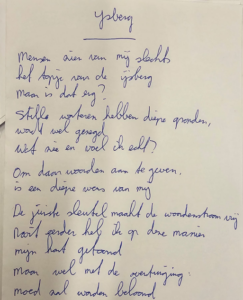 ijsberg
Mensen zien van mij slechts
het topje van de ijsberg
Maar is dat erg?
Stille wateren hebben diepe gronden,
wordt wel gezegd
Wat zie en voel ik echt?
Om daar woorden aan te geven.
is een diepe wens van mij
De juiste sleutel maakt de woordenstroom vrij
Nooit eerder heb ik op drie manier
mijn hart getoond
Maar wel met de overtuiging:
moed zal worden beloond